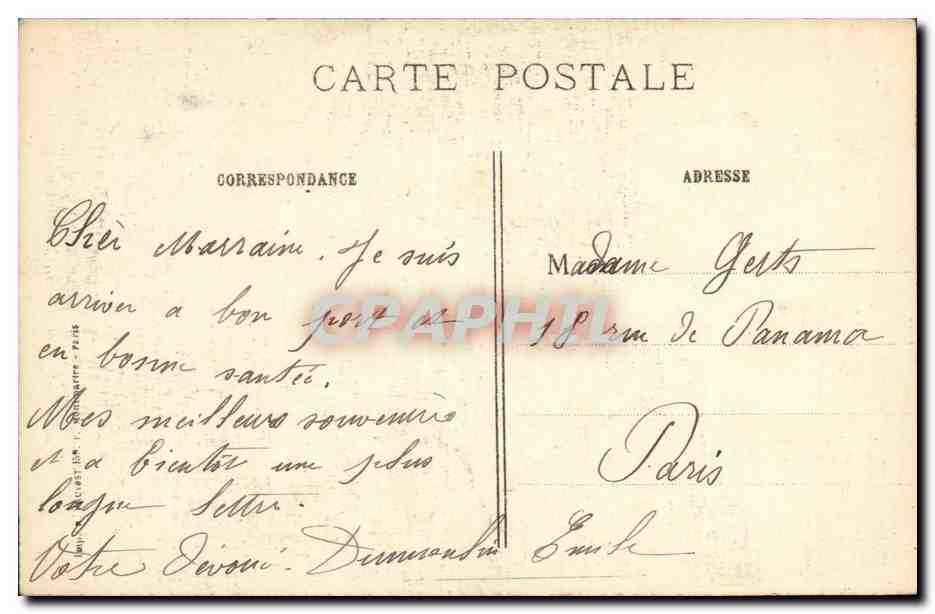 CARTE POSTALE
CORRESPONDANCE
Chèr Marraine. Je suis
arriver a bon port et
en bonne santée.
Mes meilleurs souvenirs
et a bientot une plus
longue lettre.
Votre Dévoué. Dumoulin Emile
ADRESSE
Madame Gerts
18 rue de Panama
Paris
CPAPHIL
Paris